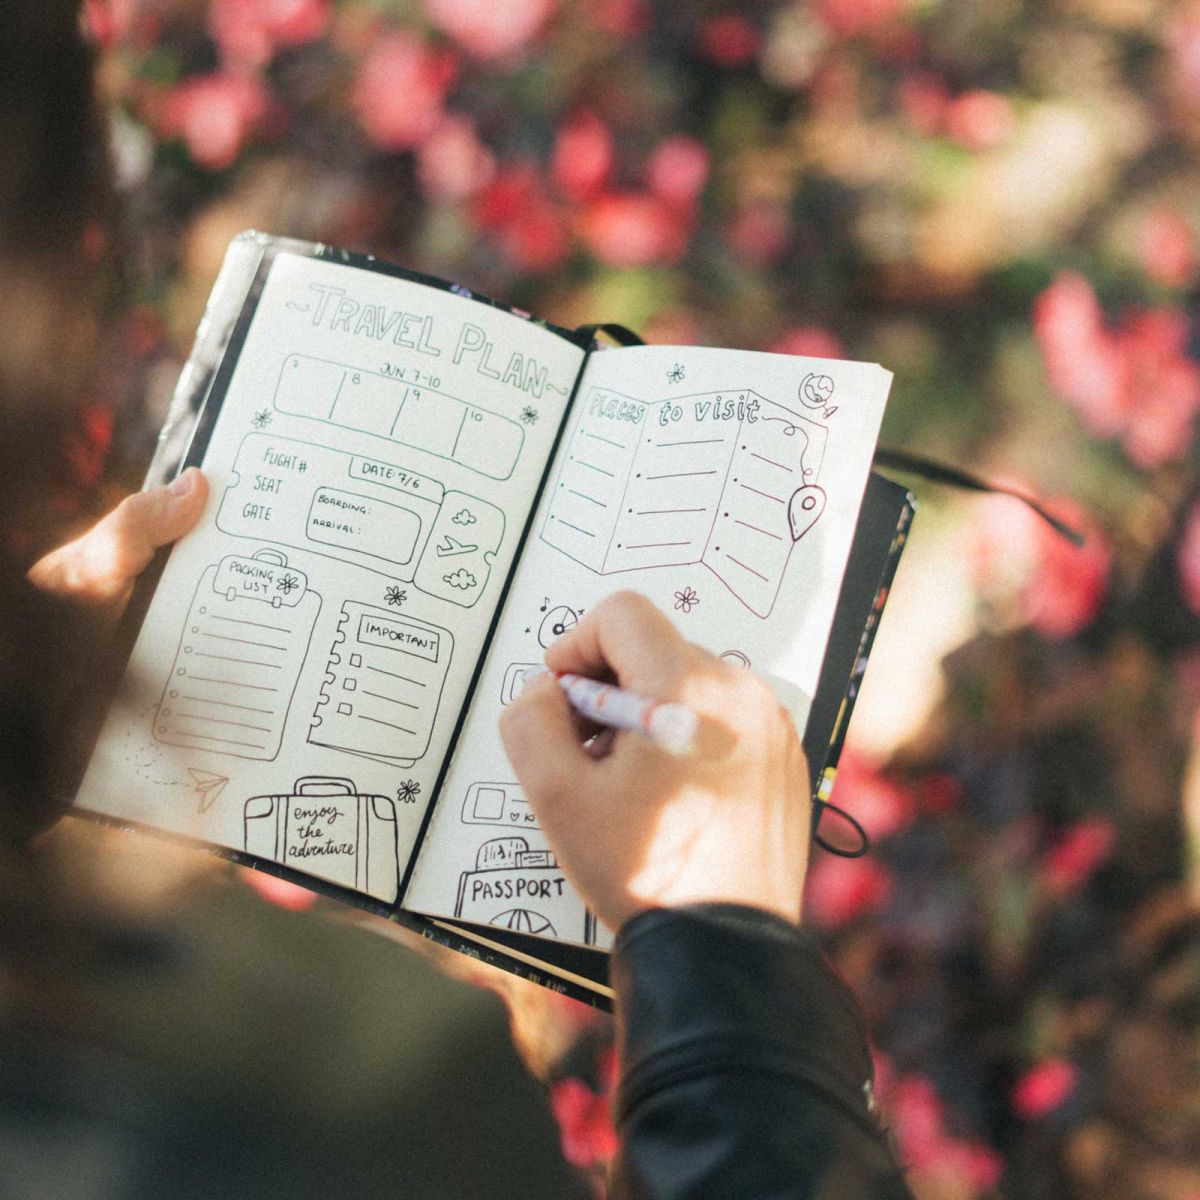 ~TRAVEL PLAN~
JUN 7-10
7 8 9 10
FLIGHT#
SEAT
GATE
DATE: 7/6
BOARDING:
ARRIVAL:
PACKING
LIST
IMPORTANT
enjoy
the
adventure
Places to visit
PASSPORT